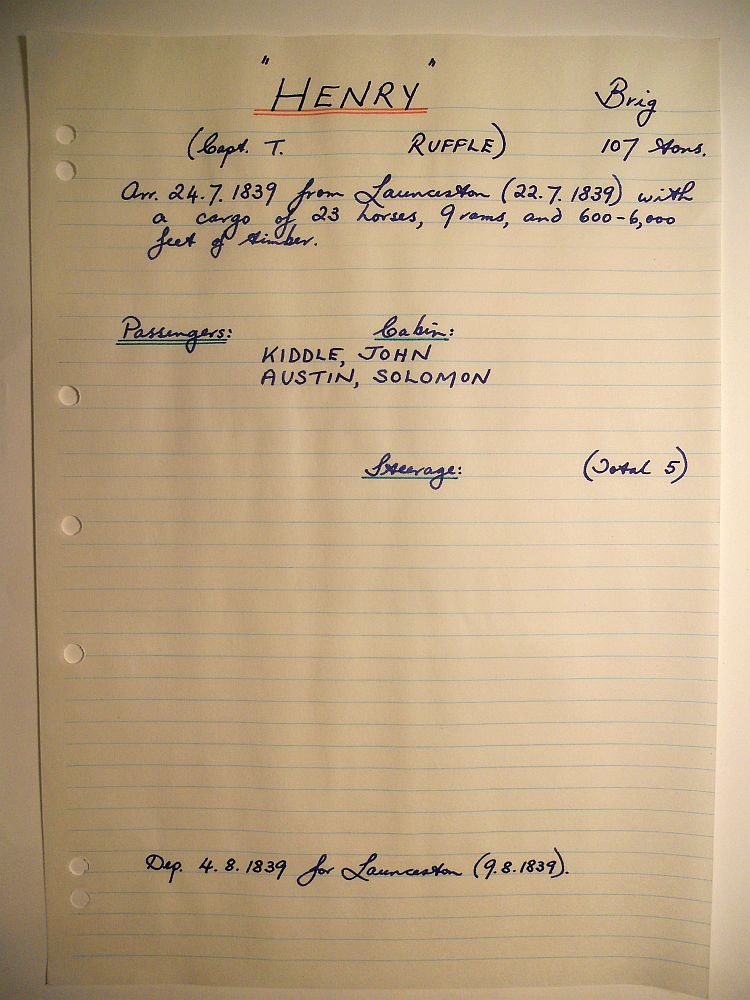 "HENRY" Brig
(Capt. T. RUFFLE) 107 tons.
Arr. 24.7.1839 from Launceston (22.7.1839) with
a cargo of 23 horses, 9 rams, and 600-6,000
feet of timber.
Passengers: Cabin:
KIDDLE, JOHN
AUSTIN, SOLOMON
Steerage: (Total 5)
Dep. 4.8.1839 for Launceston (9.8.1839).